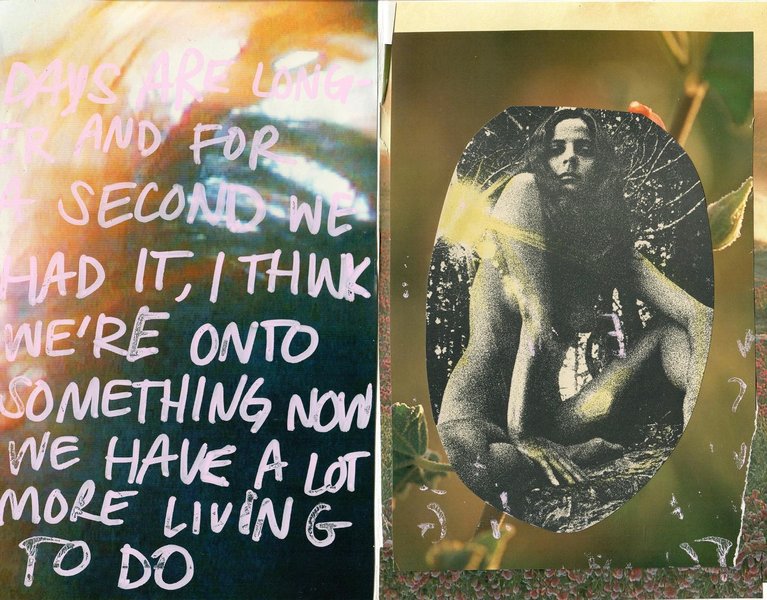 DAYS ARE LONG-
ER AND FOR
A SECOND WE
HAD IT, I THINK
WE'RE ONTO
SOMETHING NOW
WE HAVE A LOT
MORE LIVING
TO DO